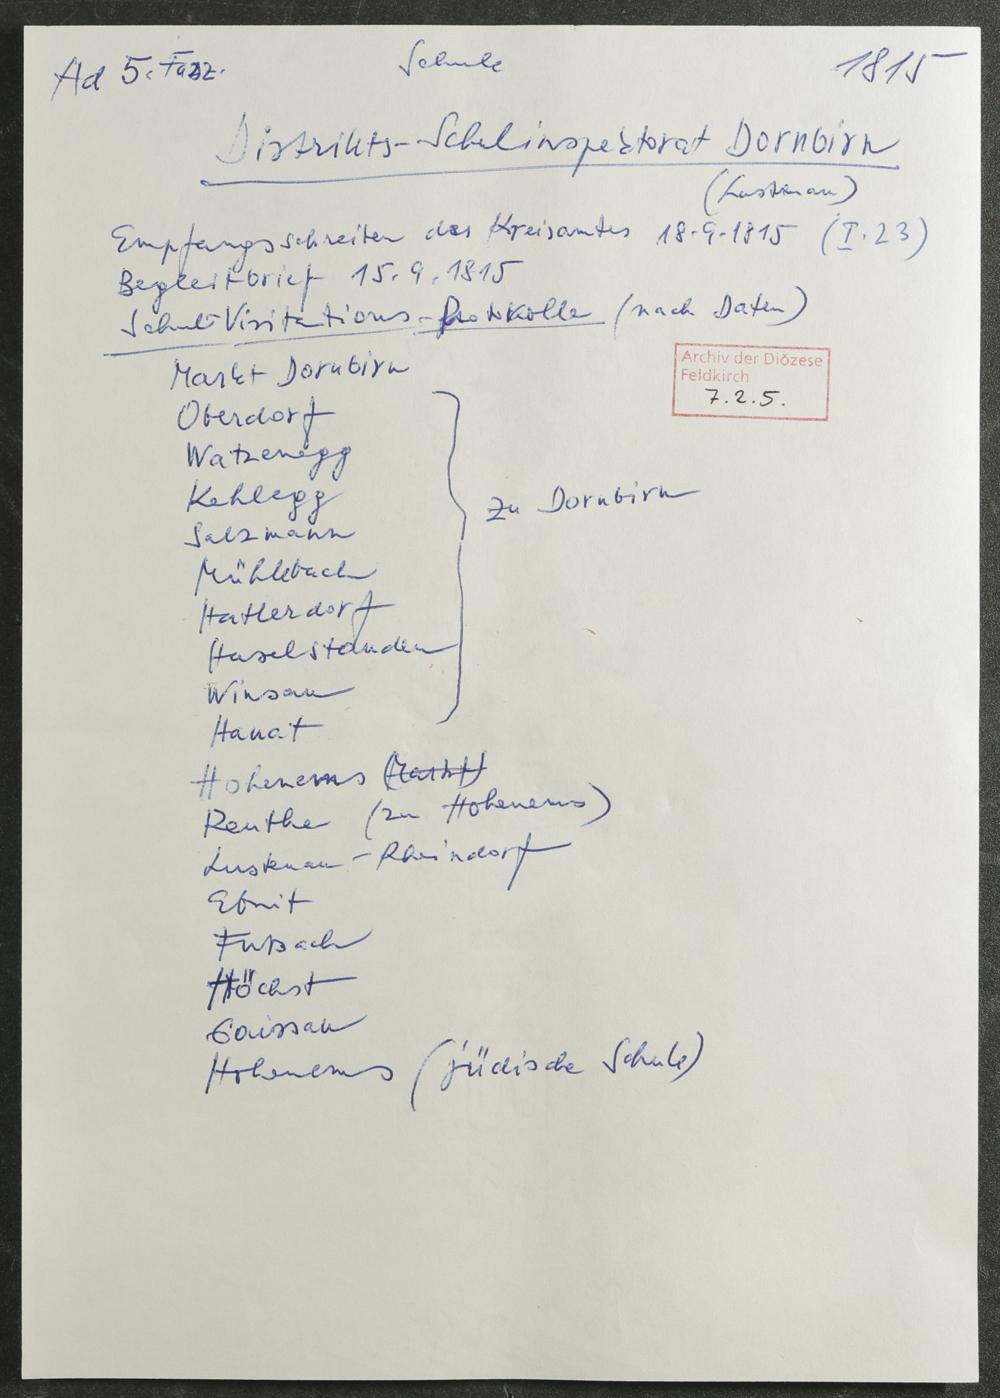 Ad 5. Fasz. Schule 1815
Distrikts-Schulinspektorat Dornbirn
(Lustenau)
Empfangsschreiben des Kreisamtes 18.9.1815 (I.23)
Begleitbrief 15.9.1815
Schul-Visitations-Protokolle (nach Daten)
Markt Dornbirn
Archiv der Diözese
Feldkirch
7.2.5.
Oberdorf
Watzenegg
Kehlegg
zu Dornbirn
Salzmann
Mühlebach
Hatlerdorf
Haselstauden
Winsau
Hanat
Hohenems (Markt)
Reuthe (zu Hohenems)
Lustenau - Rheindorf
Ebnit
Fußach
Höchst
Gaissau
Hohenems (jüdische Schule)